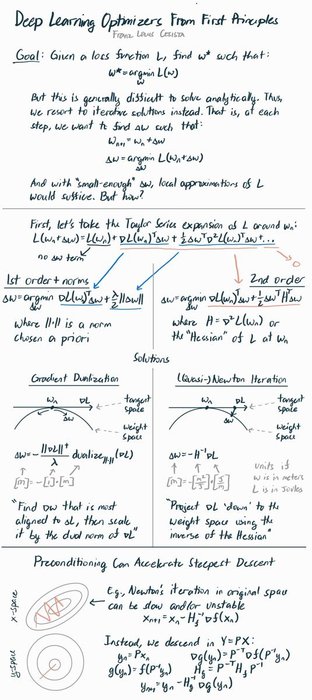 Deep Learning Optimizers From First Principles
Franz Louis Cesista
Goal: Given a loss function L, find w* such that:
w* = argmin_w L(w)
But this is generally difficult to solve analytically. Thus,
we resort to iterative solutions instead. That is, at each
step, we want to find Δw such that:
wₙ₊₁ = wₙ + Δw
Δw = argmin_Δw L(wₙ + Δw)
And with "small-enough" Δw, local approximations of L
would suffice. But how?
First, let's take the Taylor Series expansion of L around wₙ:
L(wₙ+Δw) = L(wₙ) + ∇L(wₙ)ᵀΔw + ½Δwᵀ∇²L(wₙ)ᵀΔw + ...
no Δw term
0
1st order + norms
Δw = argmin_Δw ∇L(wₙ)ᵀΔw + λ/2 ||Δw||
where ||·|| is a norm
chosen a priori
2nd order
Δw = argmin_Δw ∇L(wₙ)ᵀΔw + ½ΔwᵀHᵀΔw
where H = ∇²L(wₙ) or
the "Hessian" of L at wₙ
Solutions
Gradient Dualization
wₙ ∇L tangent space
Δw
weight space
Δw = - ||∇L||†/λ dualize_||·||(∇L)
[m] = -[1]·[m]
"Find Δw that is most
aligned to ∇L, then scale
it by the dual norm of ∇L"
(Quasi-)Newton Iteration
wₙ ∇L tangent space
Δw
weight space
Δw = -H⁻¹∇L
[m] = -[m²/J]·[J/m]
units if
w is in meters
L is in joules
"Project ∇L 'down' to the
weight space using the
inverse of the Hessian"
Preconditioning Can Accelerate Steepest Descent
x-space
E.g., Newton's iteration in original space
can be slow and/or unstable
xₙ₊₁ = xₙ - H_f⁻¹∇f(xₙ)
y-space
Instead, we descend in Y = PX:
yₙ = Pxₙ ∇g(yₙ) = P⁻ᵀ∇f(P⁻¹yₙ)
g(yₙ) = f(P⁻¹yₙ) H_g = P⁻ᵀH_f P⁻¹
yₙ₊₁ = yₙ - H_g⁻¹∇g(yₙ)